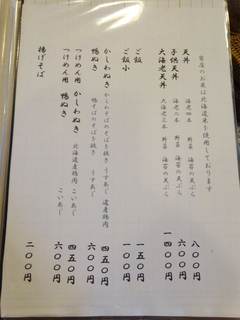 当店のお米は北海道米を使用しております
天丼 海老四本 野菜 海苔の天ぷら 八〇〇円
子供天丼 海老二本 野菜 海苔の天ぷら 六〇〇円
大海老天丼 大海老三本 野菜 海苔の天ぷら 一四〇〇円
ご飯 一五〇円
ご飯小 一〇〇円
かしわぬき かしわそばのそばを抜き うすあじ 道産鶏肉 四五〇円
鴨ぬき 鴨そばのそばを抜き うすあじ 六〇〇円
つけめん用 かしわぬき 北海道産鶏肉 こいあじ 四五〇円
つけめん用 鴨ぬき こいあじ 六〇〇円
揚げそば 二〇〇円